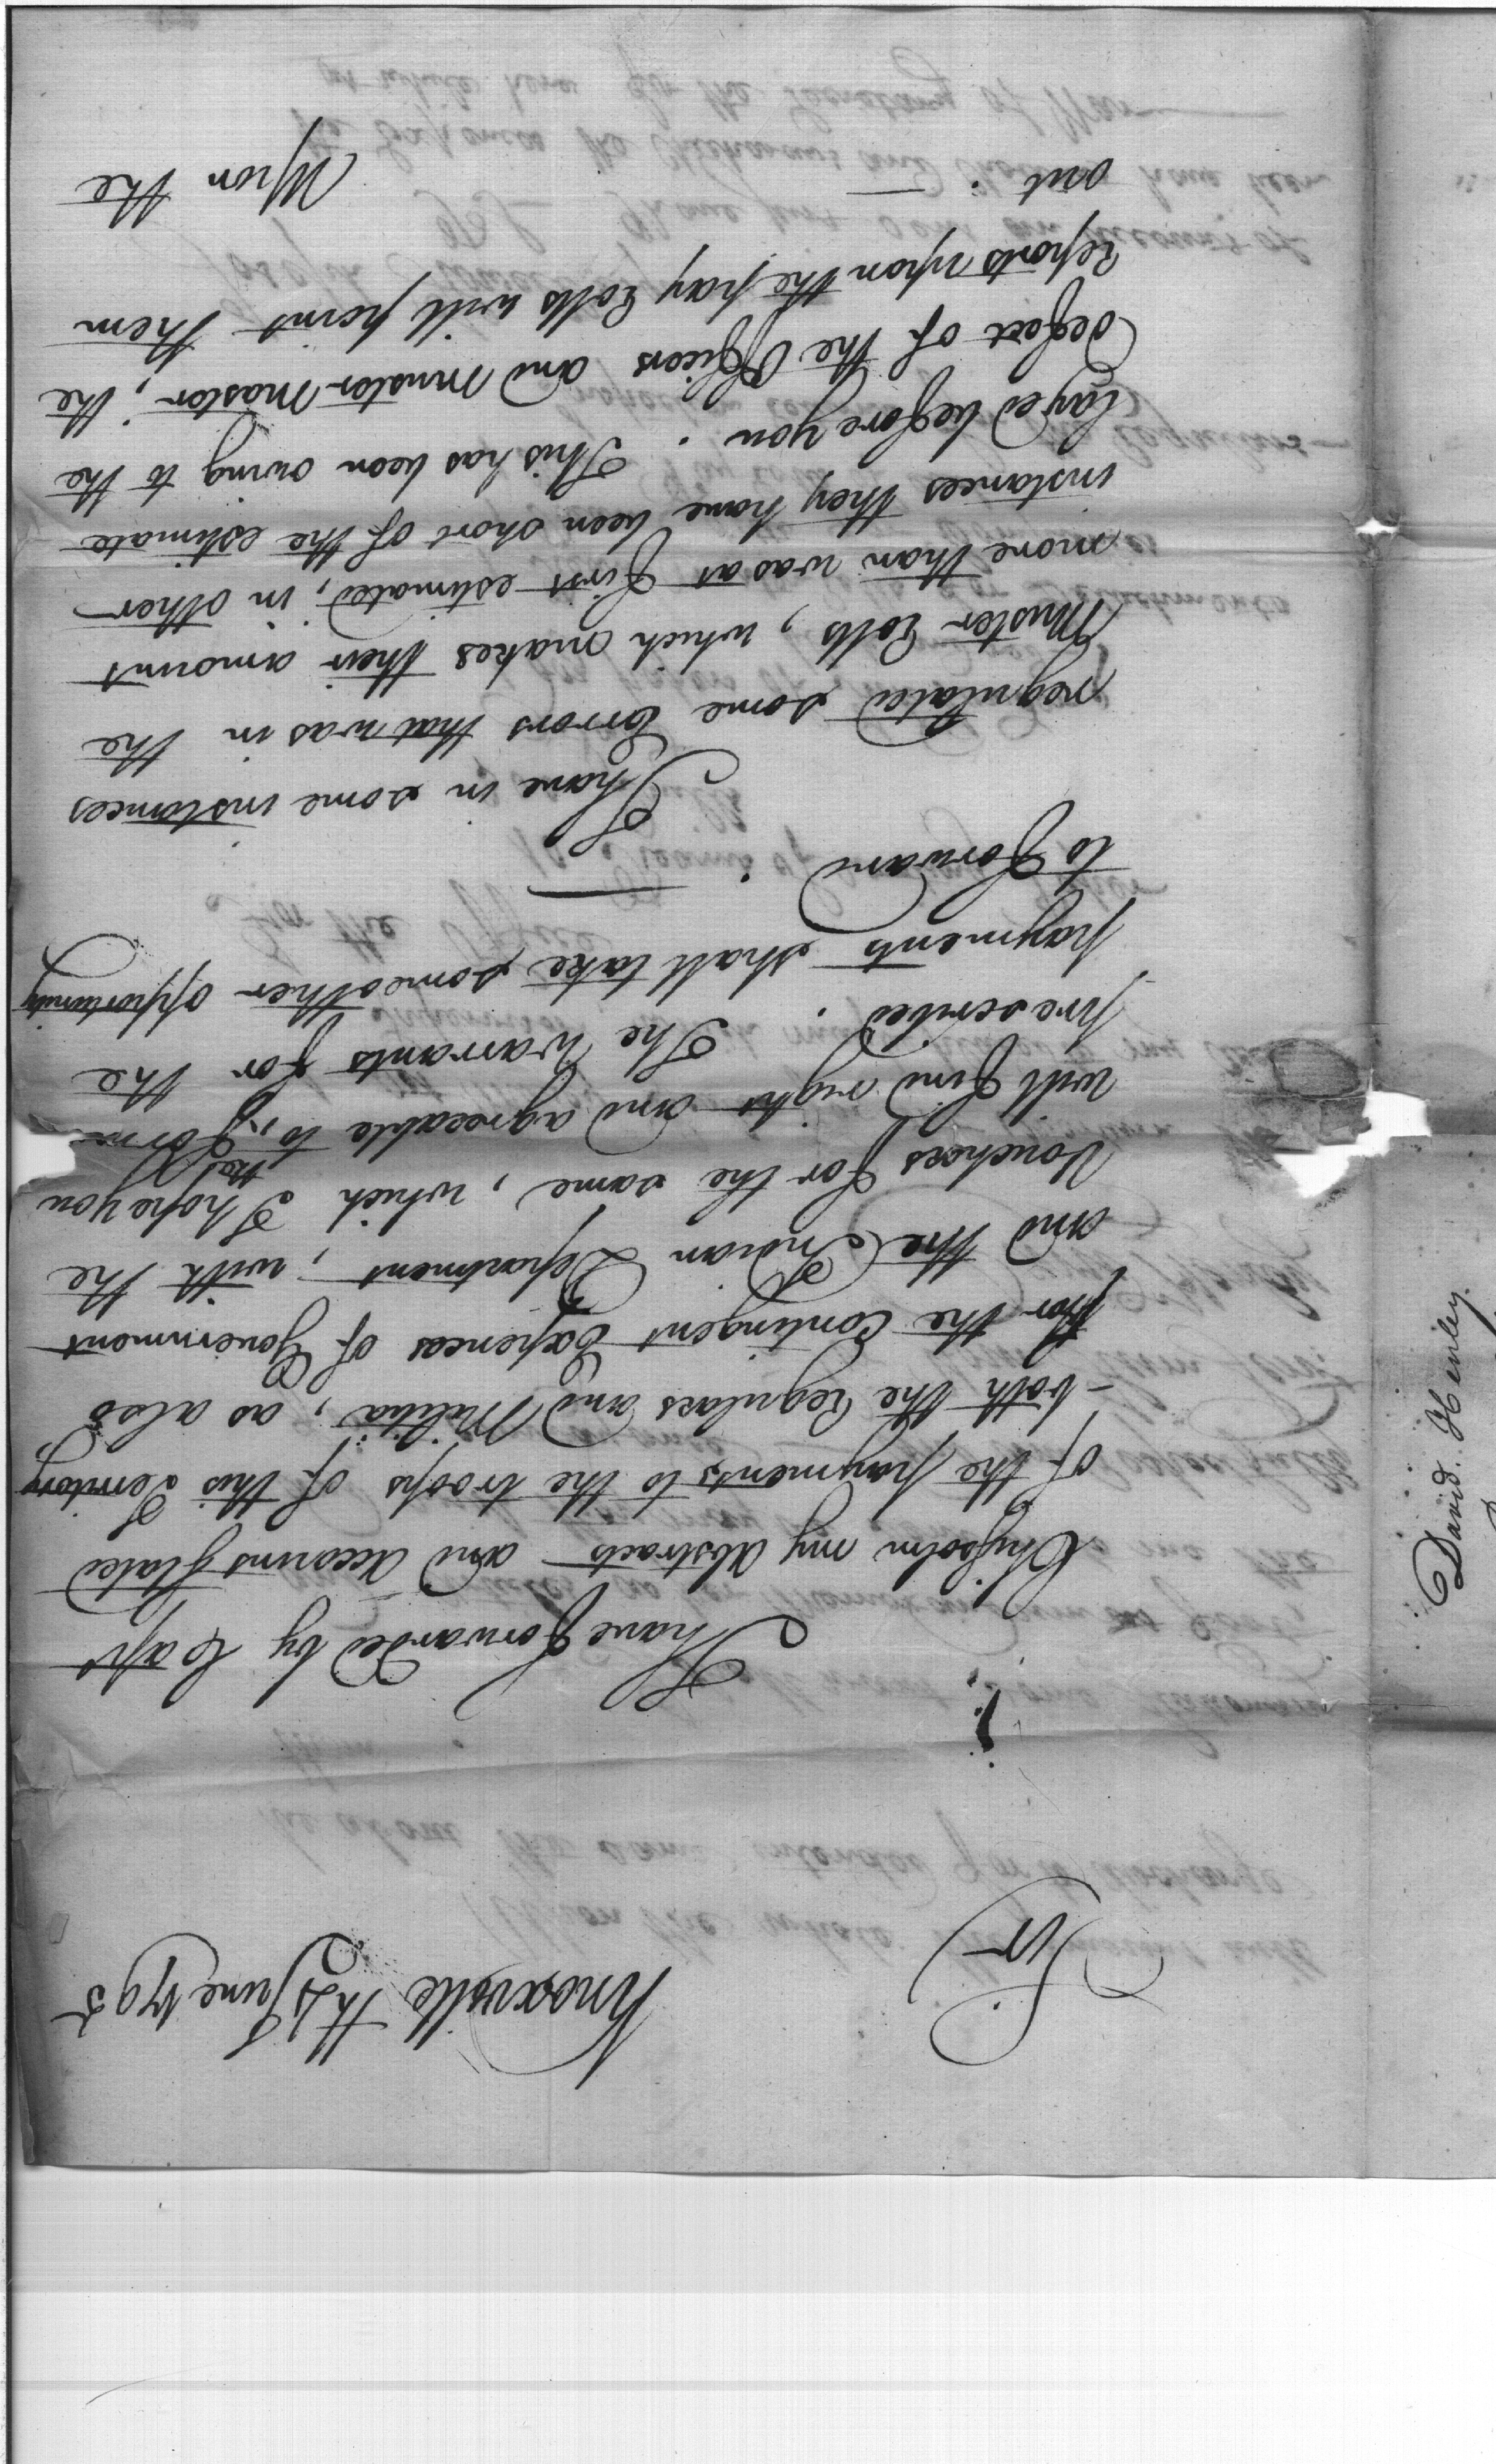 Knoxville 4th June 1795
Sir
I have forwarded by Capt
Chisolm my abstracts and accounts stated
of the payments to the troops of this Territory
both the Regulars and Militia, as also
for the Contingent Expences of Government
and the Indian Department, with the
Vouchers for the same, which I hope you
will find right and agreeable to the form
prescribed. The Warrants for the
payments shall take some other opportunity
to forward. —
I have in some instances
regulated some Errors that was in the
Muster Rolls, which makes their amount
more than was at first estimated, in other
instances they have been short of the estimate
layed before you. This has been owing to the
defect of the Officers and Muster Master, the
reports upon the pay Rolls will point them
out. — Upon the
David. Henley.